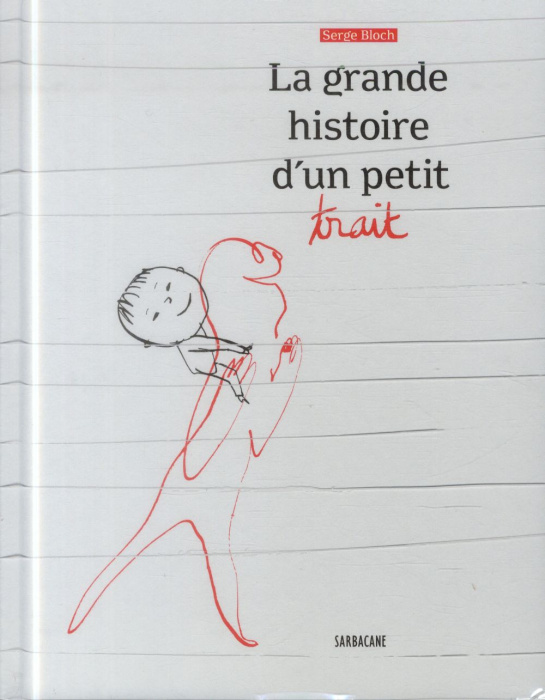 Serge Bloch
La grande
histoire
d'un petit
trait
SARBACANE